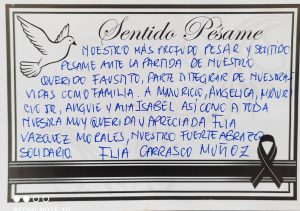 Sentido Pésame
NUESTRO MÁS PROFUDO PESAR Y SENTIDO
PESAME ANTE LA PARTIDA DE NUESTRO
QUERIDO FAUSTITO, PARTE INTEGRAR DE NUESTRA
VIDAS COMO FAMILIA. A MAURICIO, ANGELICA, MAURI
CIO JR, ANGUIE Y ANA ISABEL ASÍ COMO A TODA
NUESTRA MUY QUERIDA Y APRECIADA FLIA
VAZQUEZ MORALES, NUESTRO FUERTE ABRAZO
SOLIDARIO. FLIA CARRASCO MUÑOZ